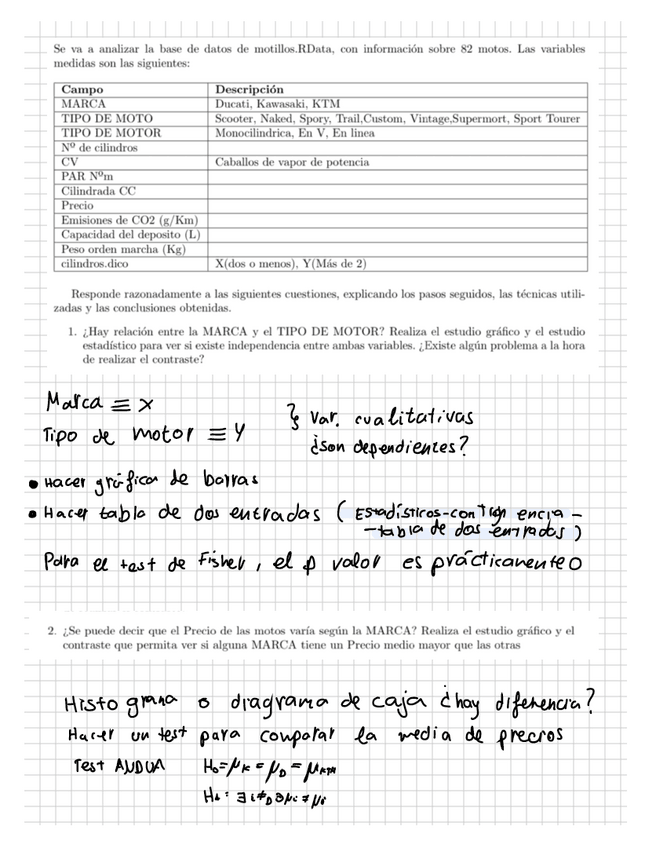 Se va a analizar la base de datos de motillos.RData, con información sobre 82 motos. Las variables
medidas son las siguientes:
Campo Descripción
MARCA Ducati, Kawasaki, KTM
TIPO DE MOTO Scooter, Naked, Spory, Trail,Custom, Vintage,Supermort, Sport Tourer
TIPO DE MOTOR Monocilindrica, En V, En linea
Nº de cilindros
CV Caballos de vapor de potencia
PAR Nºm
Cilindrada CC
Precio
Emisiones de CO2 (g/Km)
Capacidad del deposito (L)
Peso orden marcha (Kg)
cilindros.dico X(dos o menos), Y(Más de 2)
Responde razonadamente a las siguientes cuestiones, explicando los pasos seguidos, las técnicas utili-
zadas y las conclusiones obtenidas.
1. ¿Hay relación entre la MARCA y el TIPO DE MOTOR? Realiza el estudio gráfico y el estudio
estadístico para ver si existe independencia entre ambas variables. ¿Existe algún problema a la hora
de realizar el contraste?
Marca ≡ X
Tipo de motor ≡ Y } Var. cualitativas
¿son dependientes?
• Hacer gráfica de barras
• Hacer tabla de dos entradas (Estadísticos-contingencia-
-tabla de dos entradas)
Para el test de Fisher, el p valor es prácticamente 0
2. ¿Se puede decir que el Precio de las motos varía según la MARCA? Realiza el estudio gráfico y el
contraste que permita ver si alguna MARCA tiene un Precio medio mayor que las otras
Histograma o diagrama de caja ¿hay diferencia?
Hacer un test para comparar la media de precios
Test ANOVA H₀ = μK = μD = μKTM
H₁ :